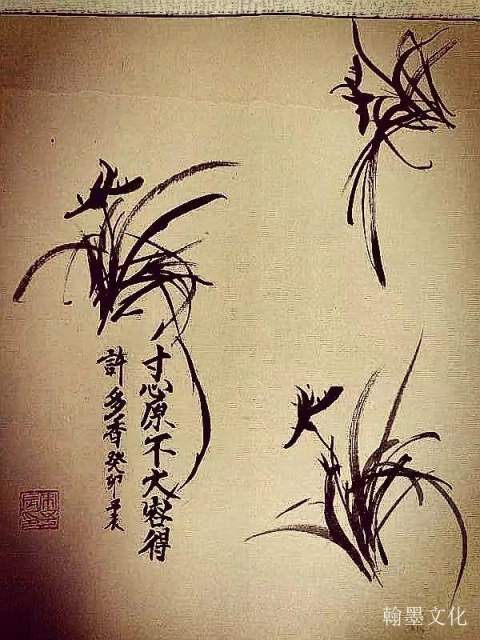 寸心原不大容得
許多香癸卯
翰墨文化